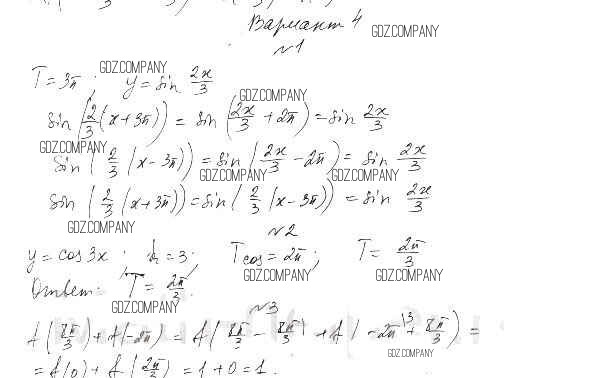 Вариант 4
GDZ.COMPANY
№1
GDZ.COMPANY
T = 3π y = sin 2x/3
GDZ.COMPANY
sin(2/3(x+3π)) = sin(2x/3 + 2π) = sin 2x/3
GDZ.COMPANY
sin(2/3(x-3π)) = sin(2x/3 - 2π) = sin 2x/3
GDZ.COMPANY GDZ.COMPANY
sin(2/3(x+3π)) = sin(2/3(x-3π)) = sin 2x/3
GDZ.COMPANY
№2
y = cos 3x; k = 3; Tcos = 2π; T = 2π/3
GDZ.COMPANY GDZ.COMPANY
Ответ: T = 2π/3.
GDZ.COMPANY
№3
f(8π/3) + f(-2π) = f(8π/3 - 8π/3) + f(-2π + 8π/3) =
GDZ.COMPANY
= f(0) + f(2π/3) = 1 + 0 = 1.